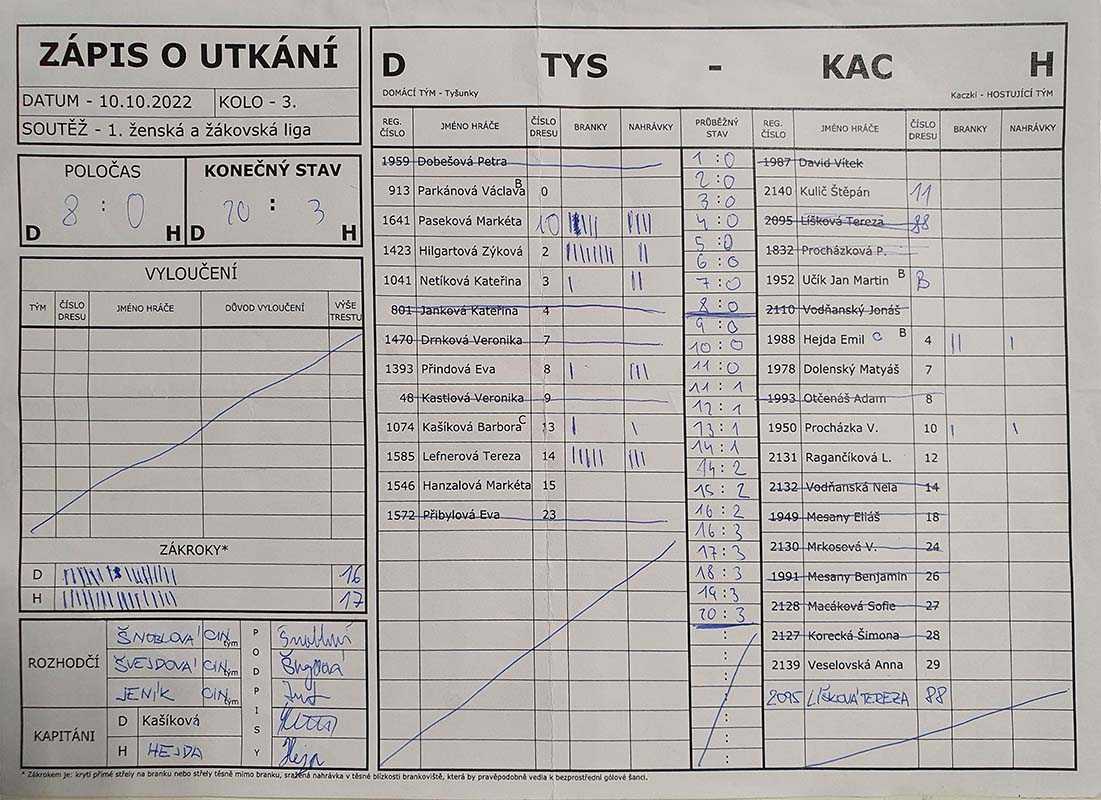 ZÁPIS O UTKÁNÍ
DATUM - 10.10.2022 KOLO - 3.
SOUTĚŽ - 1. ženská a žákovská liga
POLOČAS KONEČNÝ STAV
8 : 0 20 : 3
D H D H
VYLOUČENÍ
TÝM ČÍSLO DRESU JMÉNO HRÁČE DŮVOD VYLOUČENÍ VÝŠE TRESTU
ZÁKROKY*
D 16
H 17
ROZHODČÍ
ŠNOBLOVÁ CIN tým
ŠVEJDOVÁ CIN tým
JENÍK CIN tým
KAPITÁNI
D Kašíková
H HEJDA
PODPISY
D TYS - KAC H
DOMÁCÍ TÝM - Tyšunky Kaczki - HOSTUJÍCÍ TÝM
REG. ČÍSLO JMÉNO HRÁČE ČÍSLO DRESU BRANKY NAHRÁVKY
1959 Dobešová Petra
913 Parkánová Václava B 0
1641 Paseková Markéta 10
1423 Hilgartová Zýková 2
1041 Netíková Kateřina 3
801 Janková Kateřina 4
1470 Drnková Veronika 7
1393 Přindová Eva 8
48 Kastlová Veronika 9
1074 Kašíková Barbora C 13
1585 Lefnerová Tereza 14
1546 Hanzalová Markéta 15
1572 Přibylová Eva 23
PRŮBĚŽNÝ STAV
1 : 0
2 : 0
3 : 0
4 : 0
5 : 0
6 : 0
7 : 0
8 : 0
9 : 0
10 : 0
11 : 0
11 : 1
12 : 1
13 : 1
14 : 1
14 : 2
15 : 2
16 : 2
16 : 3
17 : 3
18 : 3
19 : 3
20 : 3
:
:
:
:
:
REG. ČÍSLO JMÉNO HRÁČE ČÍSLO DRESU BRANKY NAHRÁVKY
1987 David Vítek
2140 Kulič Štěpán 11
2095 Líšková Tereza 88
1832 Procházková P.
1952 Učík Jan Martin B B
2110 Vodňanský Jonáš
1988 Hejda Emil C B 4
1978 Dolenský Matyáš 7
1993 Otčenáš Adam 8
1950 Procházka V. 10
2131 Ragančíková L. 12
2132 Vodňanská Nela 14
1949 Mesany Eliáš 18
2130 Mrkosová V. 24
1991 Mesany Benjamin 26
2128 Macáková Sofie 27
2127 Korecká Šimona 28
2139 Veselovská Anna 29
2095 LÍŠKOVÁ TEREZA 88
* Zákrokem je: krytí přímé střely na branku nebo střely těsně mimo branku, sražená nahrávka v těsné blízkosti brankoviště, která by pravěpodobně vedla k bezprostřední gólové šanci.